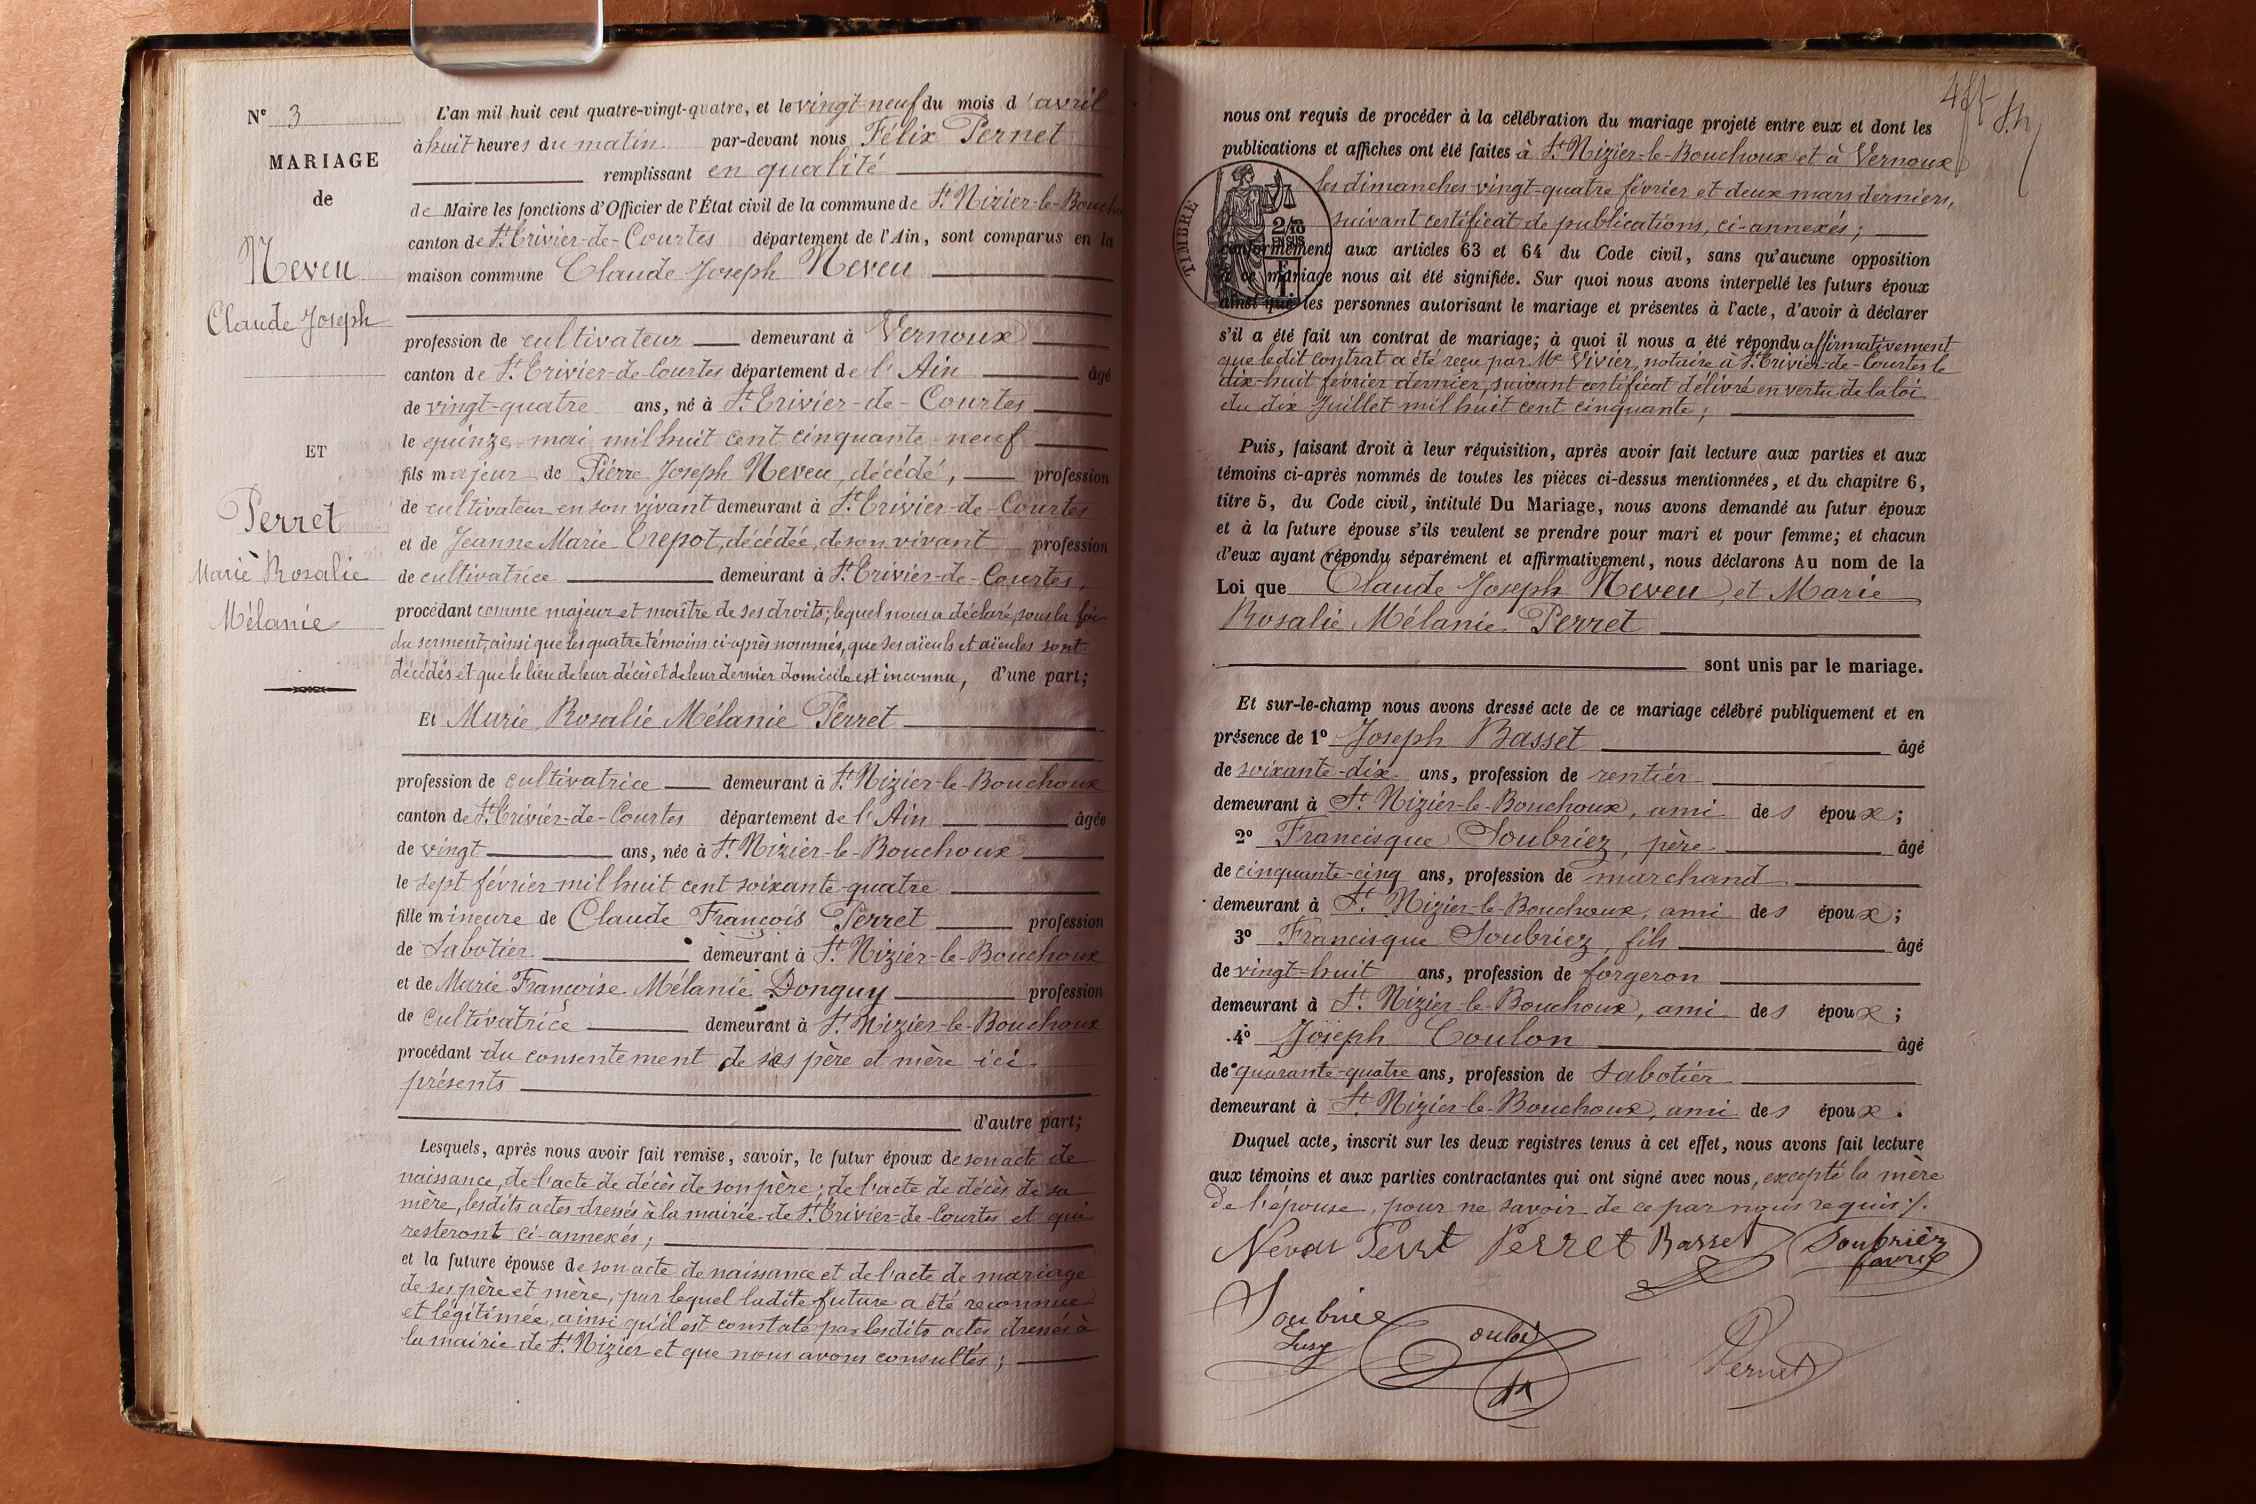 N° 3
MARIAGE
de
Neveu
Claude Joseph
ET
Perret
Marie Rosalie
Mélanie
L'an mil huit cent quatre-vingt-quatre, et le vingt-neuf du mois d'avril
à huit heures du matin par-devant nous Félix Pernet
remplissant en qualité
de Maire les fonctions d'Officier de l'État civil de la commune de St Nizier-le-Bouchoux
canton de St Trivier-de-Courtes département de l'Ain, sont comparus en la
maison commune Claude Joseph Neveu
profession de cultivateur demeurant à Vernoux
canton de St Trivier-de-Courtes département de l'Ain âgé
de vingt-quatre ans, né à St Trivier-de-Courtes
le quinze mai mil huit cent cinquante-neuf
fils majeur de Pierre Joseph Neveu, décédé, profession
de cultivateur en son vivant demeurant à St Trivier-de-Courtes
et de Jeanne Marie Crepot, décédée, de son vivant profession
de cultivatrice demeurant à St Trivier-de-Courtes,
procédant comme majeur et maître de ses droits; lequel nous a déclaré, sous la foi
du serment, ainsi que les quatre témoins ci-après nommés, que ses aïeuls et aïeules sont
décédés et que le lieu de leur décès et de leur dernier domicile est inconnu, d'une part;
Et Marie Rosalie Mélanie Perret
profession de cultivatrice demeurant à St Nizier-le-Bouchoux
canton de St Trivier-de-Courtes département de l'Ain âgée
de vingt ans, née à St Nizier-le-Bouchoux
le sept février mil huit cent soixante-quatre
fille mineure de Claude François Perret profession
de Sabotier demeurant à St Nizier-le-Bouchoux
et de Marie Françoise Mélanie Donguy profession
de cultivatrice demeurant à St Nizier-le-Bouchoux
procédant du consentement de ses père et mère ici
présents
d'autre part;
Lesquels, après nous avoir fait remise, savoir, le futur époux de son acte de
naissance, de l'acte de décès de son père; de l'acte de décès de sa
mère, lesdits actes dressés à la mairie de St Trivier-de-Courtes et qui
resteront ci-annexés;
et la future épouse de son acte de naissance et de l'acte de mariage
de ses père et mère, par lequel ladite future a été reconnue
et légitimée, ainsi qu'il est constaté par lesdits actes dressés à
la mairie de St Nizier et que nous avons consultés;
nous ont requis de procéder à la célébration du mariage projeté entre eux et dont les
publications et affiches ont été faites à St Nizier-le-Bouchoux et à Vernoux
les dimanches vingt-quatre février et deux mars derniers,
suivant certificat de publications, ci-annexés;
TIMBRE
2/10
EN SUS
conformément aux articles 63 et 64 du Code civil, sans qu'aucune opposition
à ce mariage nous ait été signifiée. Sur quoi nous avons interpellé les futurs époux
ainsi que les personnes autorisant le mariage et présentes à l'acte, d'avoir à déclarer
s'il a été fait un contrat de mariage; à quoi il nous a été répondu affirmativement
que ledit contrat a été reçu par Me Vivier, notaire à St Trivier-de-Courtes le
dix-huit février dernier, suivant certificat délivré en vertu de la loi
du dix Juillet mil huit cent cinquante;
Puis, faisant droit à leur réquisition, après avoir fait lecture aux parties et aux
témoins ci-après nommés de toutes les pièces ci-dessus mentionnées, et du chapitre 6,
titre 5, du Code civil, intitulé Du Mariage, nous avons demandé au futur époux
et à la future épouse s'ils veulent se prendre pour mari et pour femme; et chacun
d'eux ayant répondu séparément et affirmativement, nous déclarons Au nom de la
Loi que Claude Joseph Neveu et Marie
Rosalie Mélanie Perret
sont unis par le mariage.
Et sur-le-champ nous avons dressé acte de ce mariage célébré publiquement et en
présence de 1° Joseph Basset âgé
de soixante-dix ans, profession de rentier
demeurant à St Nizier-le-Bouchoux, ami des époux;
2° Francisque Soubriez, père âgé
de cinquante-cinq ans, profession de marchand
demeurant à St Nizier-le-Bouchoux, ami des époux;
3° Francisque Soubriez, fils âgé
de vingt-huit ans, profession de forgeron
demeurant à St Nizier-le-Bouchoux, ami des époux;
4° Joseph Coulon âgé
de quarante-quatre ans, profession de Sabotier
demeurant à St Nizier-le-Bouchoux, ami des époux.
Duquel acte, inscrit sur les deux registres tenus à cet effet, nous avons fait lecture
aux témoins et aux parties contractantes qui ont signé avec nous, excepté la mère
de l'épouse, pour ne savoir de ce par nous requis ./.
Neveu Perret Perret Basset Soubriez
Soubriez
Coulon
Pernet